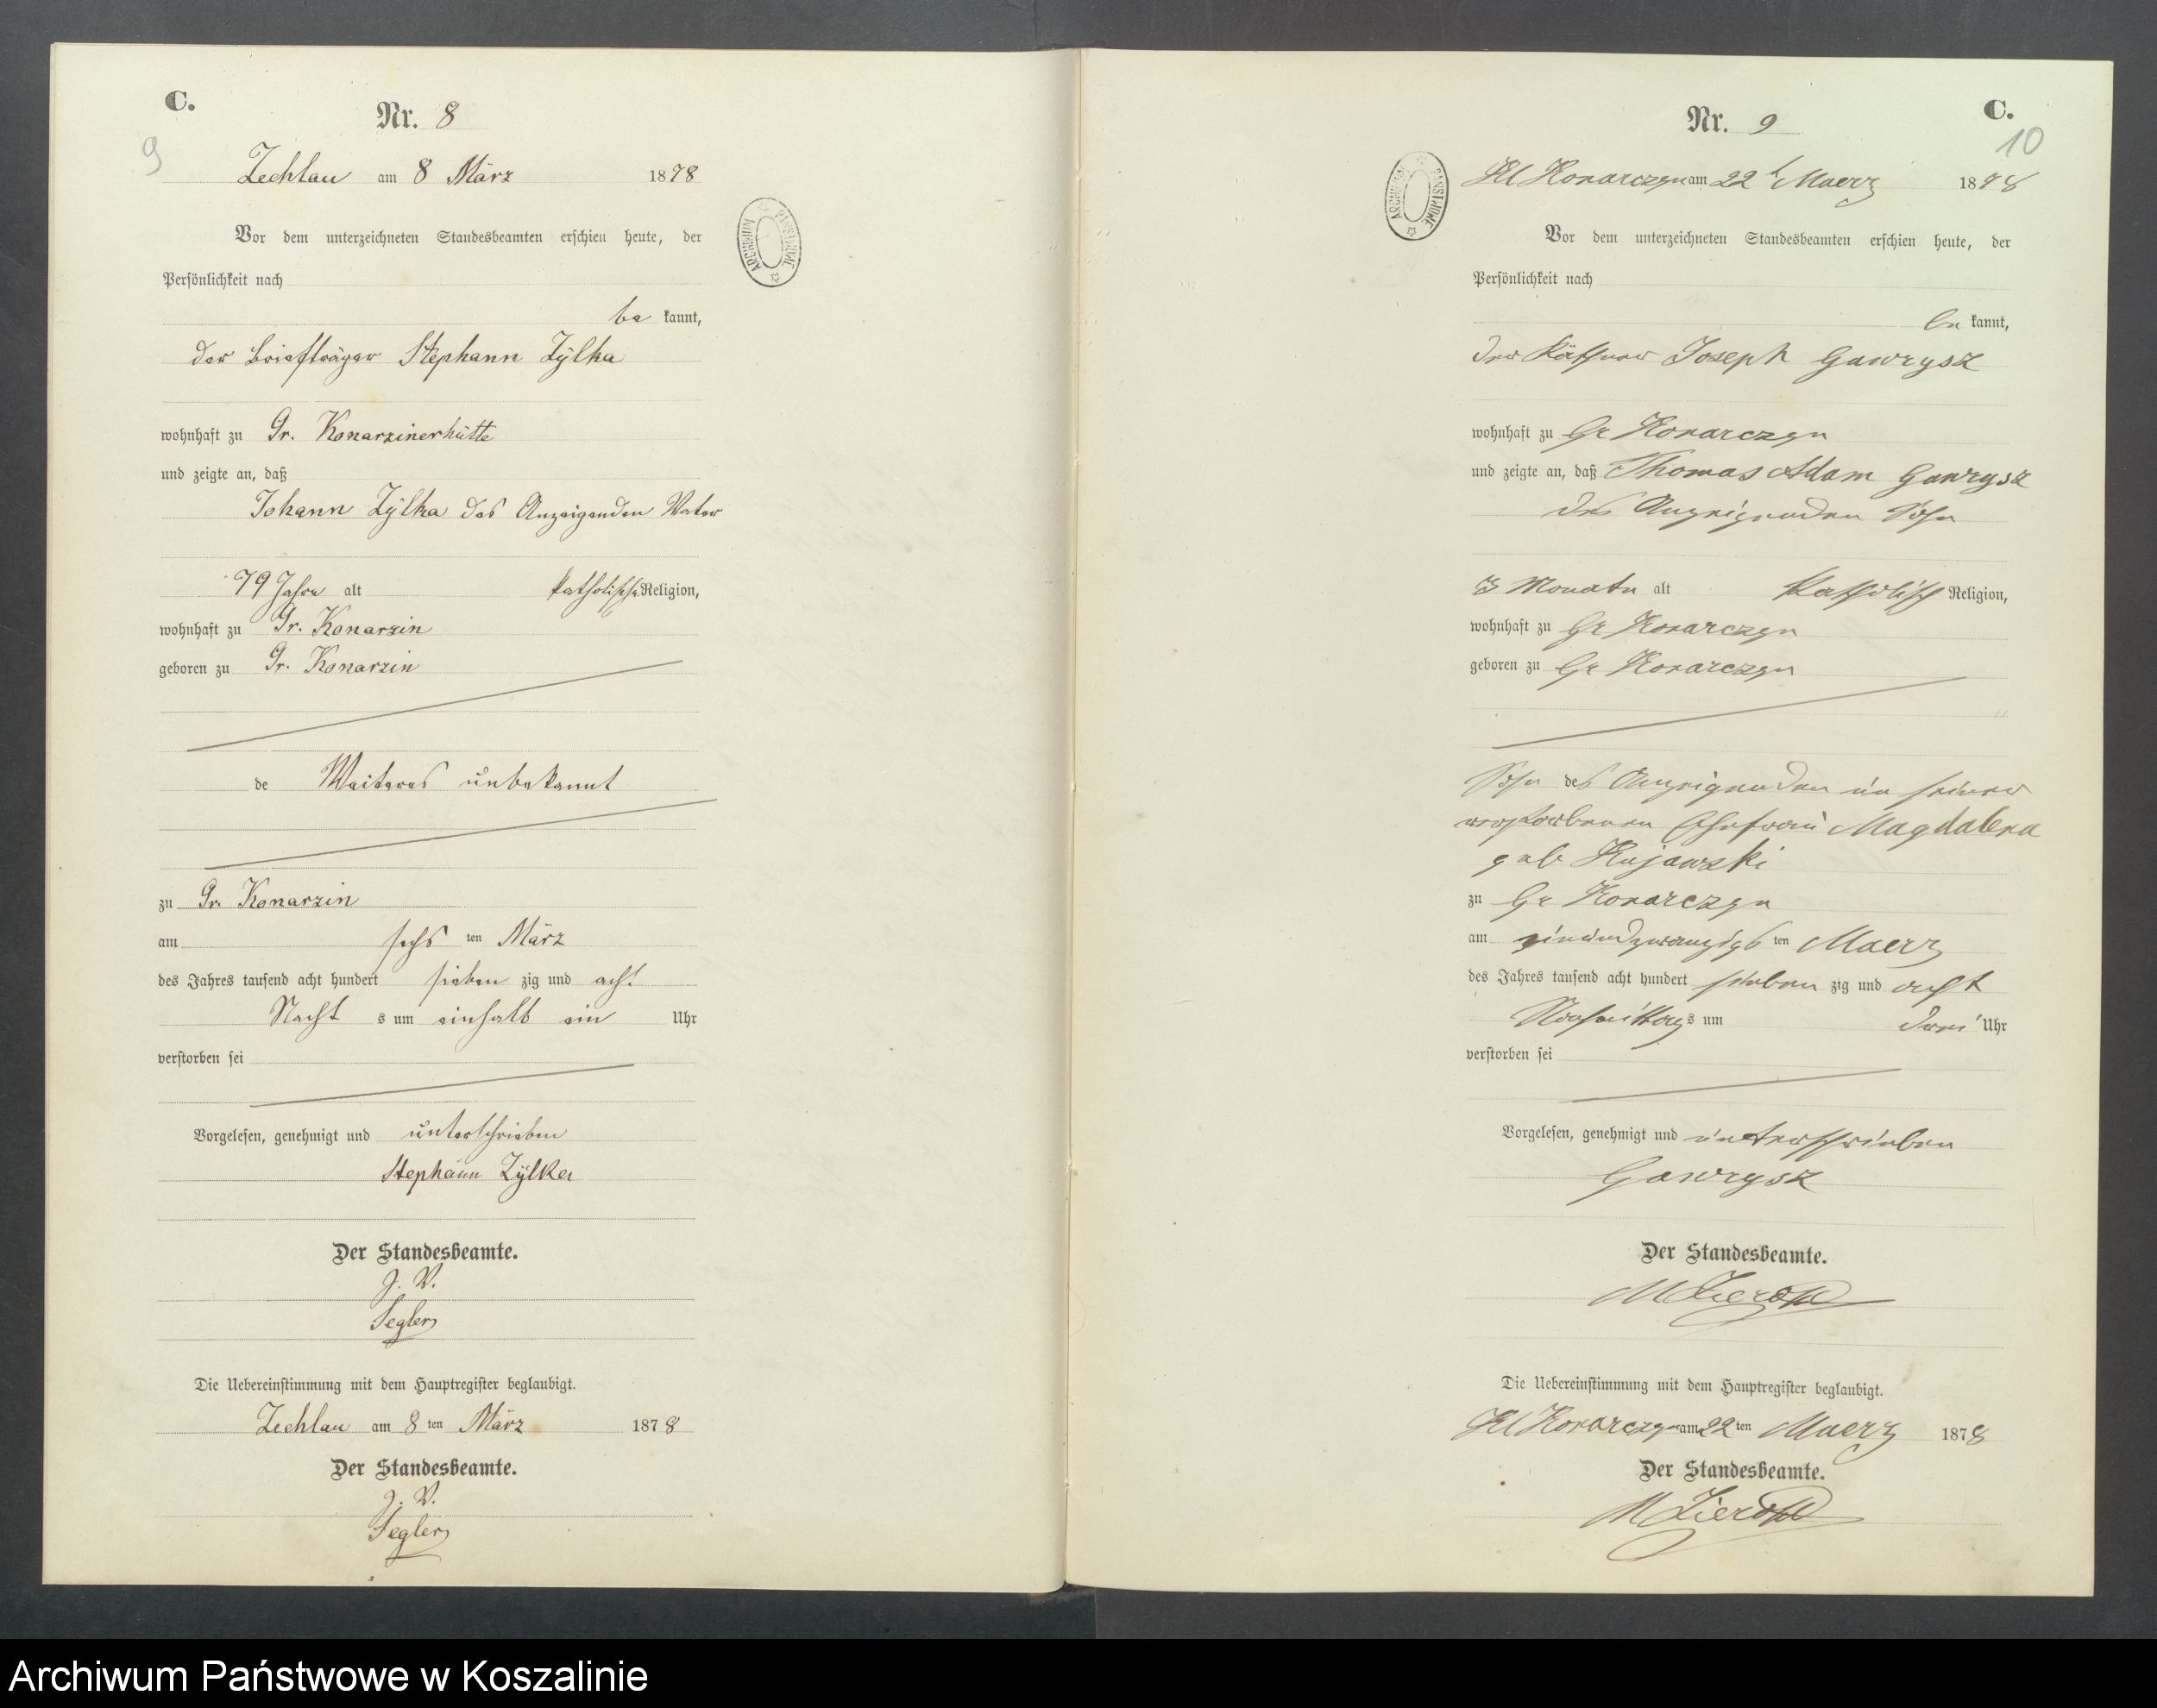 C.
Nr. 8
9
Zechlau am 8 März 1878
Vor dem unterzeichneten Standesbeamten erschien heute, der
Persönlichkeit nach
be kannt,
der Briefträger Stephann Zÿlka
wohnhaft zu Gr. Konarzinerhütte
und zeigte an, daß
Johann Zÿlka des Anzeigenden Vater
79 Jahre alt katholischer Religion,
wohnhaft zu Gr. Konarzin
geboren zu Gr. Konarzin
de Weiteres unbekannt
zu Gr. Konarzin
am sechs ten März
des Jahres tausend acht hundert sieben zig und acht
Nacht s um einhalb ein Uhr
verstorben sei
Vorgelesen, genehmigt und unterschrieben
Stephann Zÿlka
Der Standesbeamte.
J. V.
Segler
Die Uebereinstimmung mit dem Hauptregister beglaubigt.
Zechlau am 8 ten März 1878
Der Standesbeamte.
J. V.
Segler
C.
Nr. 9
10
Kl Konarczyn am 22 t Maerz 1878
Vor dem unterzeichneten Standesbeamten erschien heute, der
Persönlichkeit nach
be kannt,
der Käthner Joseph Gawrysz
wohnhaft zu Gr Konarczyn
und zeigte an, daß Thomas Adam Gawrysz
des Anzeigenden Sohn
3 Monate alt katholisch Religion,
wohnhaft zu Gr Konarczyn
geboren zu Gr Konarczyn
Sohn des Anzeigenden un seiner
verstorbenen Ehefrau Magdalena
geb Kujawski
zu Gr Konarczyn
am einundzwanzigs ten Maerz
des Jahres tausend acht hundert sieben zig und acht
Nachmittags um drei Uhr
verstorben sei
Vorgelesen, genehmigt und unterschrieben
Gawrysz
Der Standesbeamte.
Die Uebereinstimmung mit dem Hauptregister beglaubigt.
Kl Konarczyn am 22 ten Maerz 1878
Der Standesbeamte.
ARCHIWUM PAŃSTWOWE
Archiwum Państwowe w Koszalinie